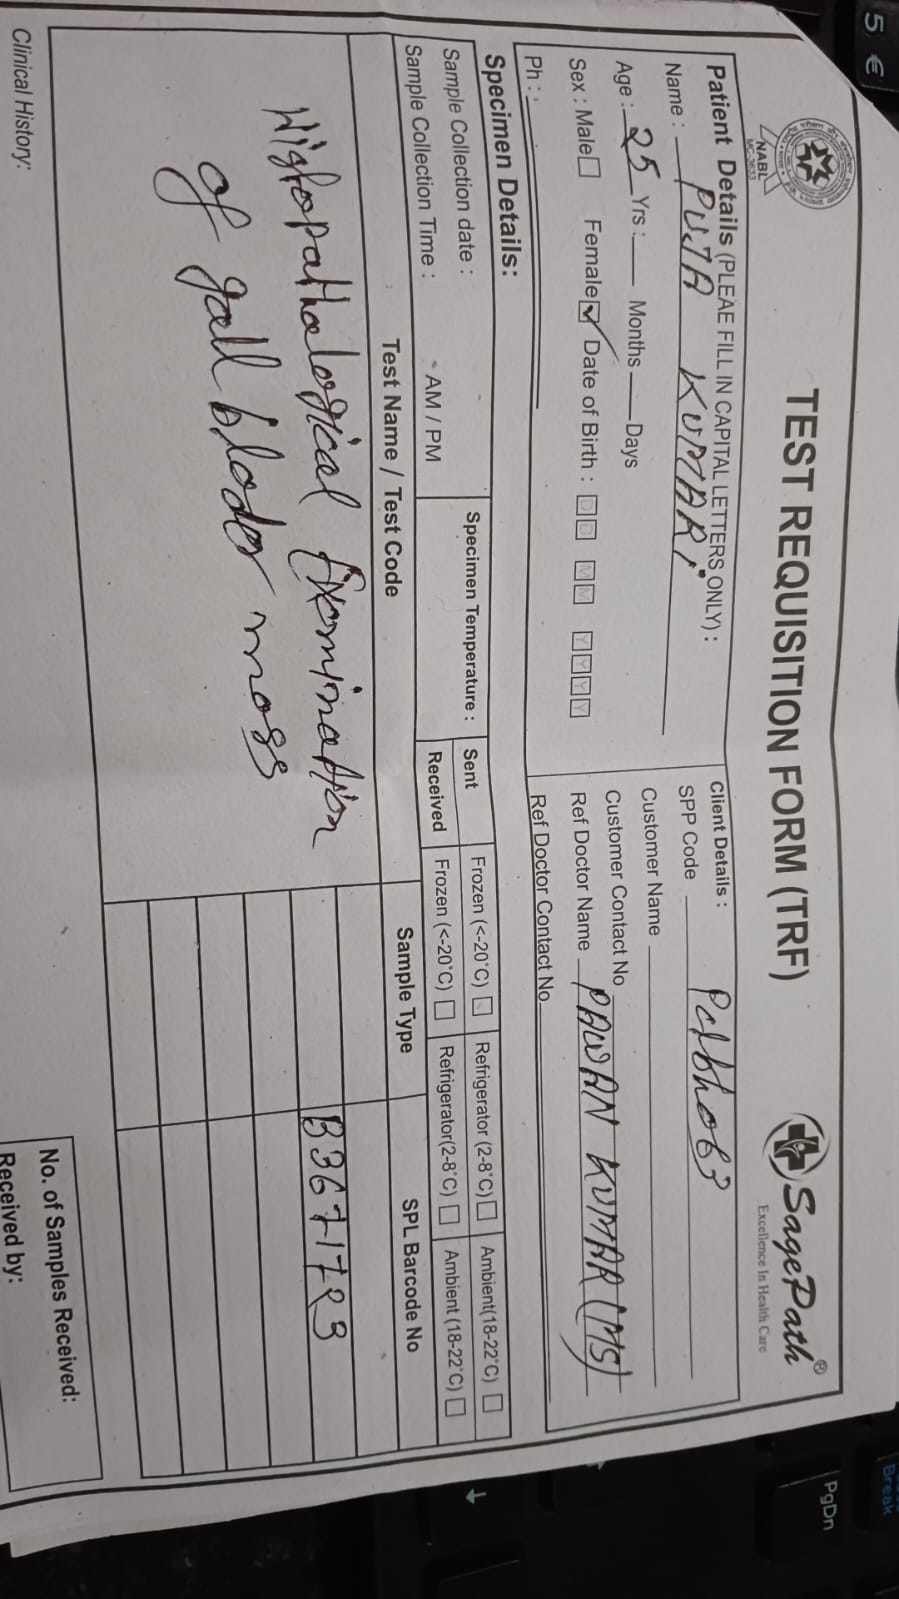 5 €
NABL
MC-3633
TEST REQUISITION FORM (TRF)
SagePath®
Excellence In Health Care
Patient Details (PLEAE FILL IN CAPITAL LETTERS ONLY) :
Name : PUJA KUMARi
Age : 25 Yrs : Months Days
Sex : Male Female Date of Birth : DD MM YYYY
Ph :
Client Details :
SPP Code
Customer Name
Customer Contact No
Ref Doctor Name PAWAN KUMAR (MS)
Ref Doctor Contact No
Specimen Details:
Sample Collection date :
Sample Collection Time : AM / PM
Specimen Temperature :
Sent Frozen (<-20°C) Refrigerator (2-8°C) Ambient(18-22°C)
Received Frozen (<-20°C) Refrigerator(2-8°C) Ambient (18-22°C)
Test Name / Test Code Sample Type SPL Barcode No
Histopathological Examination
of gall blader mass
B3671783
Clinical History:
No. of Samples Received:
Received by:
PgDn
Break